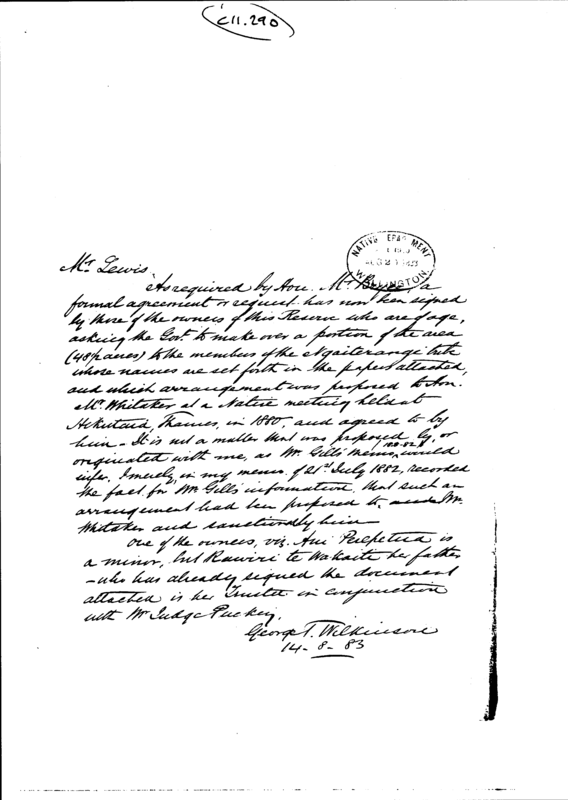 C11.290
NATIVE DEPARTMENT
WELLINGTON
Mr Lewis
As required by Hon. Mr Bryce, a
formal agreement or request has now been signed
by those of the owners of this Reserve who are of age,
asking the Govt. to make over a portion of the area
(48½ acres) to the members of the Ngaiterangi tribe
whose names are set forth in the papers attached,
and which arrangement was proposed to Hon.
Mr. Whitaker at a Native meeting held at
Thames, in 1880, and agreed to by
him - It is not a matter that was proposed by, or
originated with me, as Mr. Gill's memo would
infer, I merely, in my memo. of 21st July 1882, recorded
the fact, for Mr Gill's information, that such an
arrangement had been proposed to Mr
Whitaker and sanctioned by him -
One of the owners, viz. Ani Perpetua is
a minor, but Rawiri te Wakaiti her father
- who has already signed the document
attached is her Trustee in conjunction
with Mr Judge Puckey.
George T. Wilkinson
14-8-83